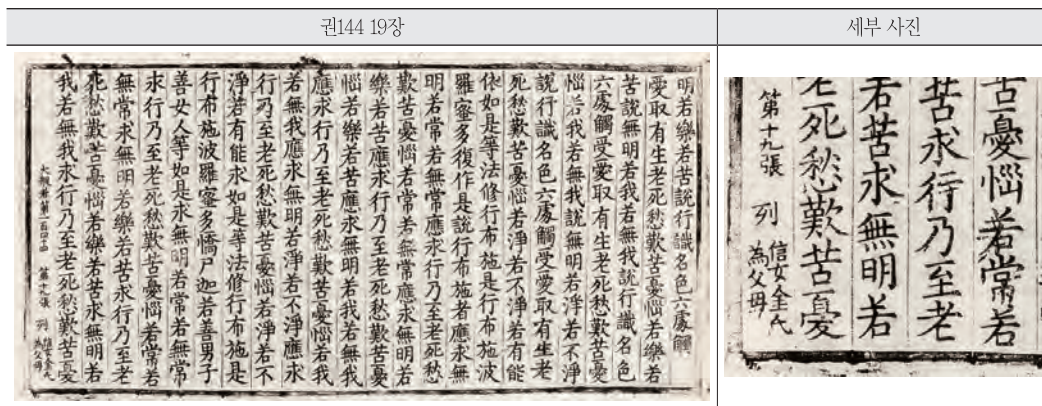 권144 19장
세부 사진
明若樂若苦說行識名色六處觸
愛取有生老死愁歎苦憂惱若樂若
苦說無明若我若無我說行識名色
六處觸受愛取有生老死愁歎苦憂
惱若我若無我說無明若淨若不淨
說行識名色六處觸受愛取有生老
死愁歎苦憂惱若淨若不淨若有能
依如是等法修行布施是行布施波
羅蜜多復作是說行布施者應求無
明若常若無常應求行乃至老死愁
歎苦憂惱若常若無常應求無明若
樂若苦應求行乃至老死愁歎苦憂
惱若樂若苦應求無明若我若無我
應求行乃至老死愁歎苦憂惱若我
若無我應求無明若淨若不淨應求
行乃至老死愁歎苦憂惱若淨若不
淨若有能求如是等法修行布施是
行布施波羅蜜多憍尸迦若善男子
善女人等如是求無明若常若無常
求行乃至老死愁歎苦憂惱若常若
無常求無明若樂若苦求行乃至老
死愁歎苦憂惱若樂若苦求無明若
我若無我求行乃至老死愁歎苦憂
大般若第一百四十四 第十九張 列 信女金氏
為父母
苦憂惱若常若
苦求行乃至老
若苦求無明若
老死愁歎苦憂
第十九張 列 信女金氏
為父母